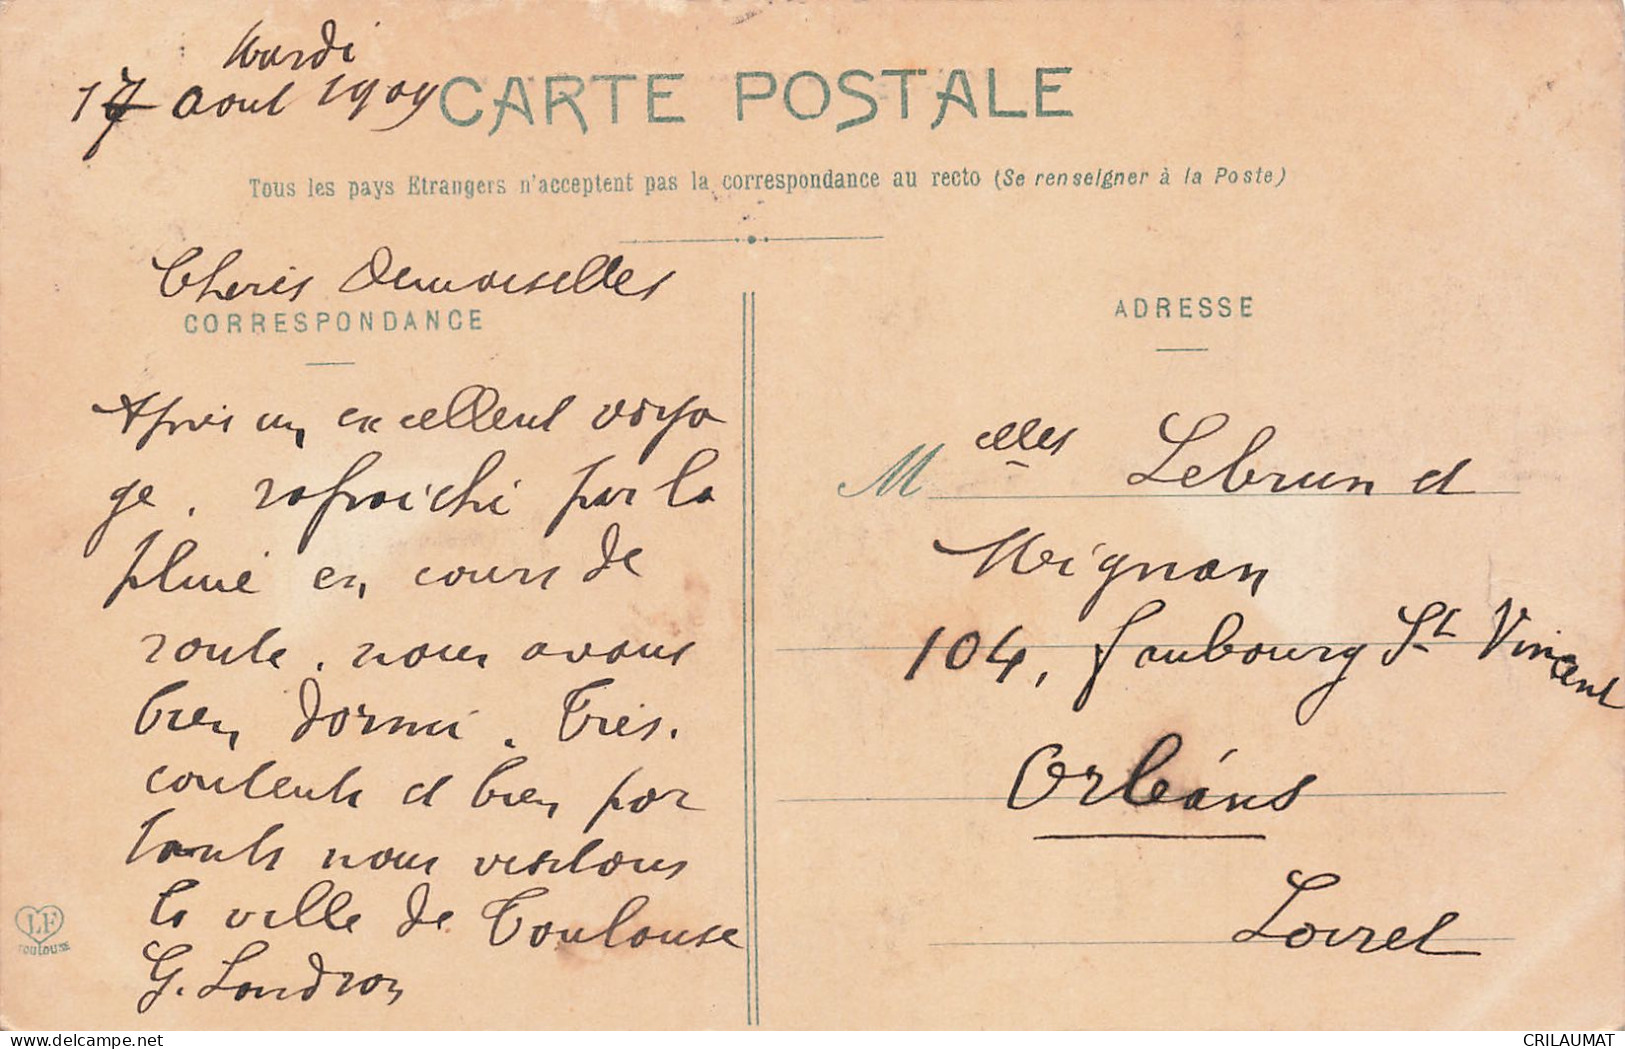 Mardi
17 Aout 1909
CARTE POSTALE
Tous les pays Etrangers n'acceptent pas la correspondance au recto (Se renseigner à la Poste)
Cheres Demoiselles
CORRESPONDANCE
Après un excellent voya
ge, rafraichi par la
pluie en cours de
route, nous avons
bien dormi. Très.
contents et bien por
tants nous visitons
la ville de Toulouse
G. Landron
LF
TOULOUSE
ADRESSE
Melles Lebrun et
Mignan
104, faubourg St Vincent
Orléans
Loiret
delcampe.net
CRILAUMAT